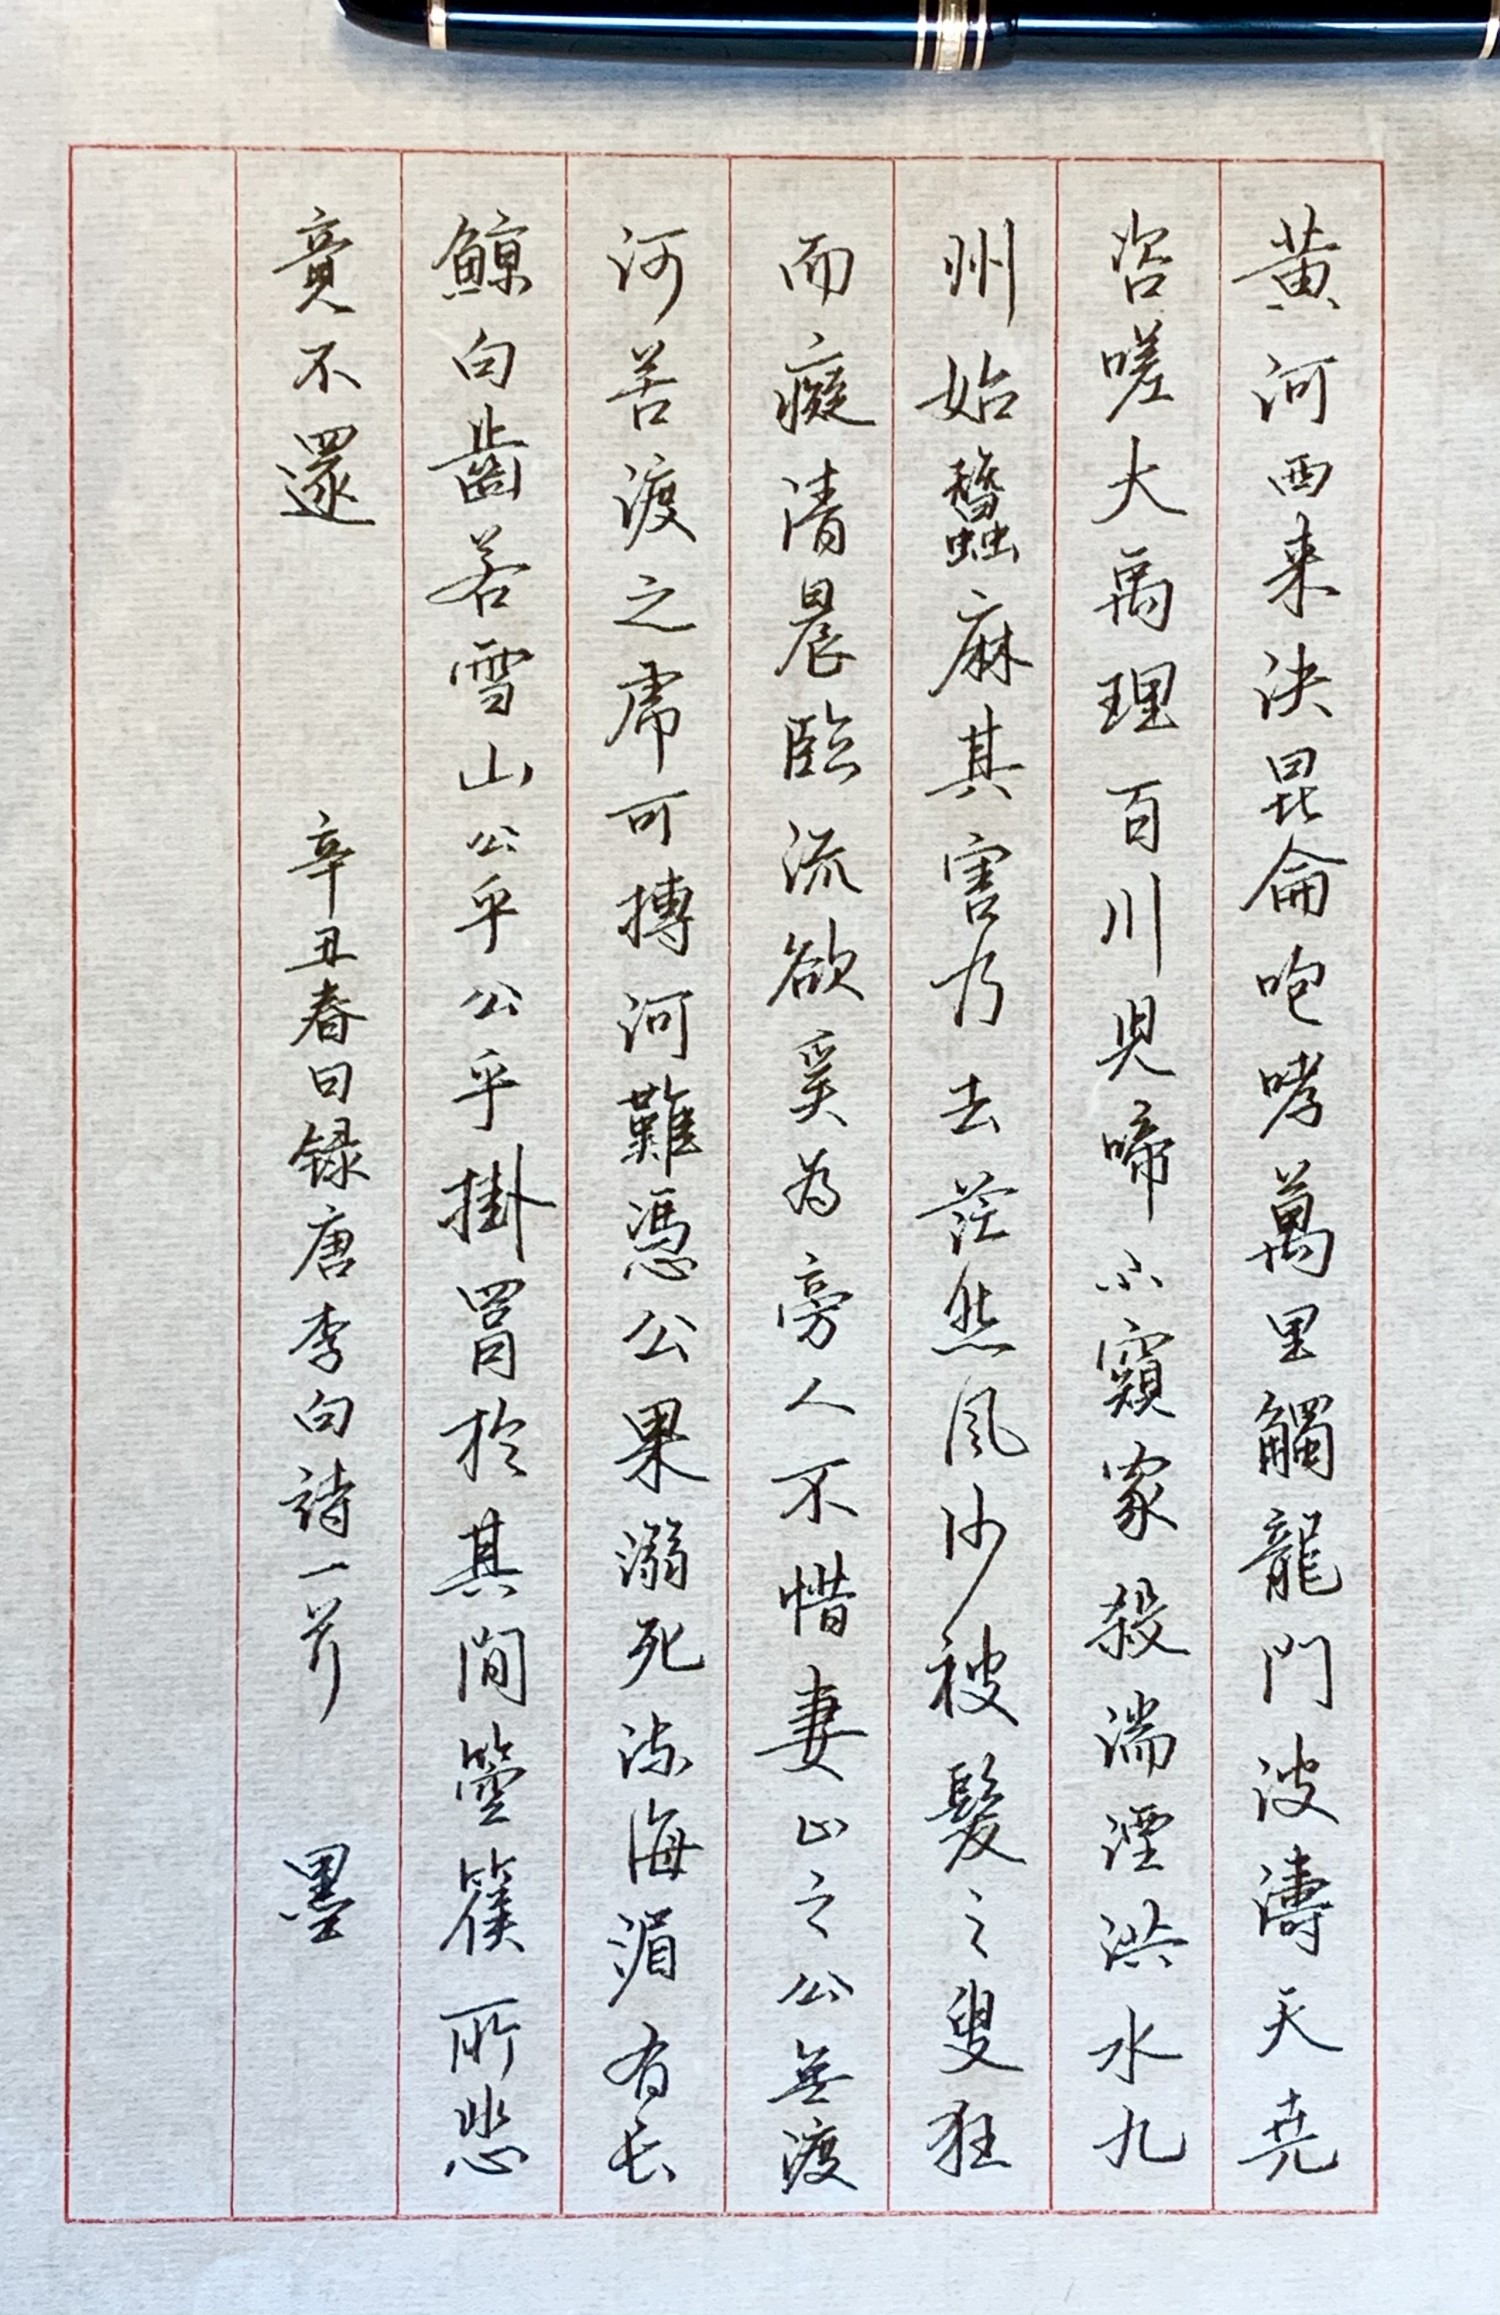 黄河西来決崑崙咆哮萬里觸龍門波濤天堯
咨嗟大禹理百川兒啼不窺家殺湍湮洪水九
州始蠶麻其害乃去茫然風沙被髮之叟狂
而癡清晨臨流欲奚為旁人不惜妻止之公無渡
河苦渡之虎可搏河難憑公果溺死流海湄有長
鯨白齒若雪山公乎公乎掛罥於其間箜篌所悲
竟不還 辛丑春日録唐李白詩一首 墨